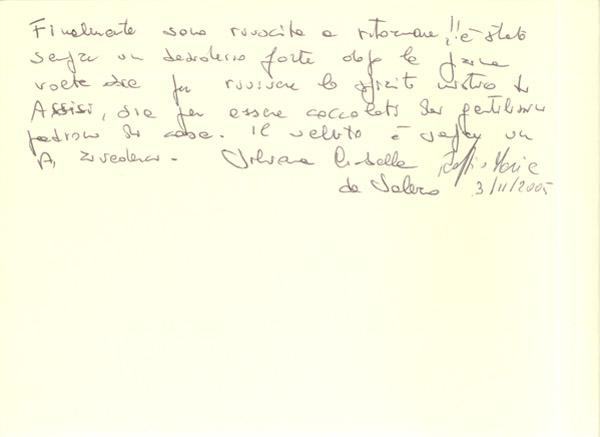 Finalmente sono riuscita a ritornare!! è stato
sempre un desiderio forte dopo la prima
volta sia per rivivere lo spirito mistico di
Assisi, sia per essere coccolati dai gentilissimi
padroni di casa. Il saluto è sempre un
Arrivederci. Silvana
da Salerno 3/11/2005